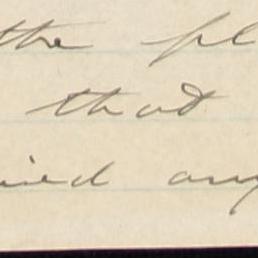 the pl
that
ied any